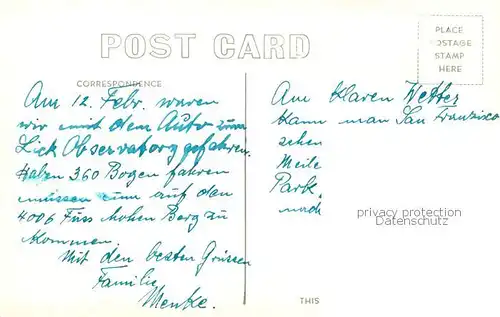 POST CARD
PLACE
POSTAGE
STAMP
HERE
CORRESPONDENCE
Am 12. Febr. waren
wir mit dem Auto zum
Lick Observatory gefahren.
Haben 360 Bogen fahren
müssen um auf den
4006 Fuss hohen Berg zu
kommen.
Mit den besten Grüssen
Familie
Menke.
Am klaren Wetter
kann man San Franzisco
sehen
Meile
Park.
nach
privacy protection
Datenschutz
THIS